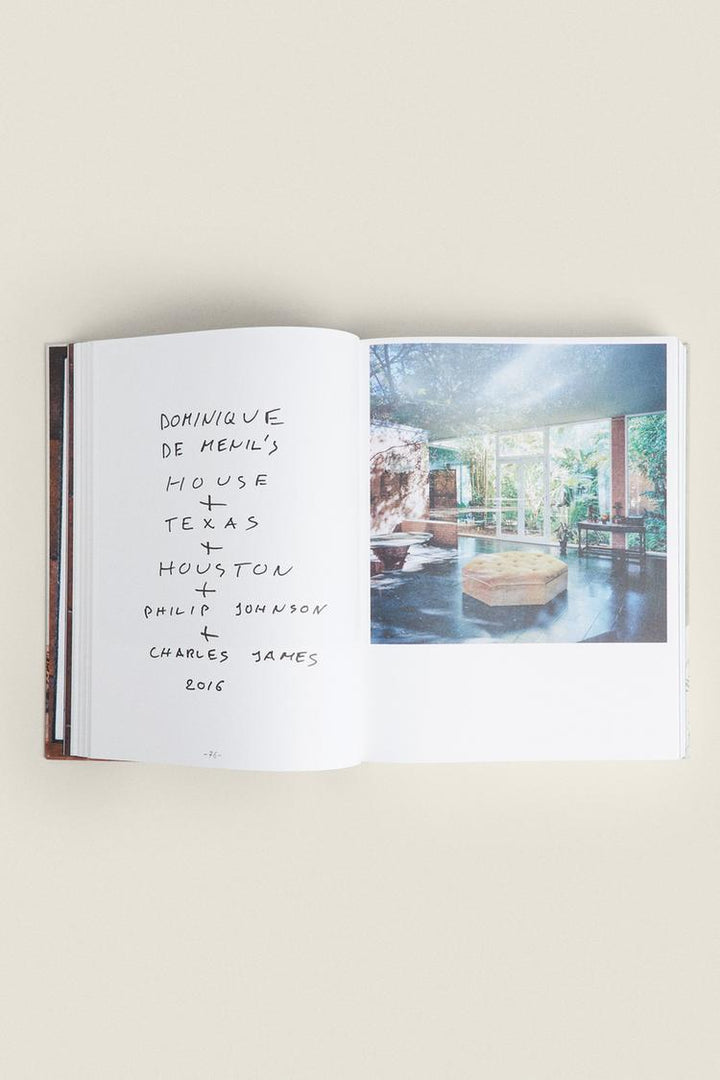 DOMINIQUE
DE MENIL'S
HOUSE
+
TEXAS
+
HOUSTON
+
PHILIP JOHNSON
+
CHARLES JAMES
2016
-76-